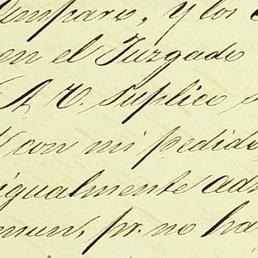 Ampare, y los
en el Juzgado
A V. Suplico
con mi pedido
igualmente ad
mun, pr. no ha